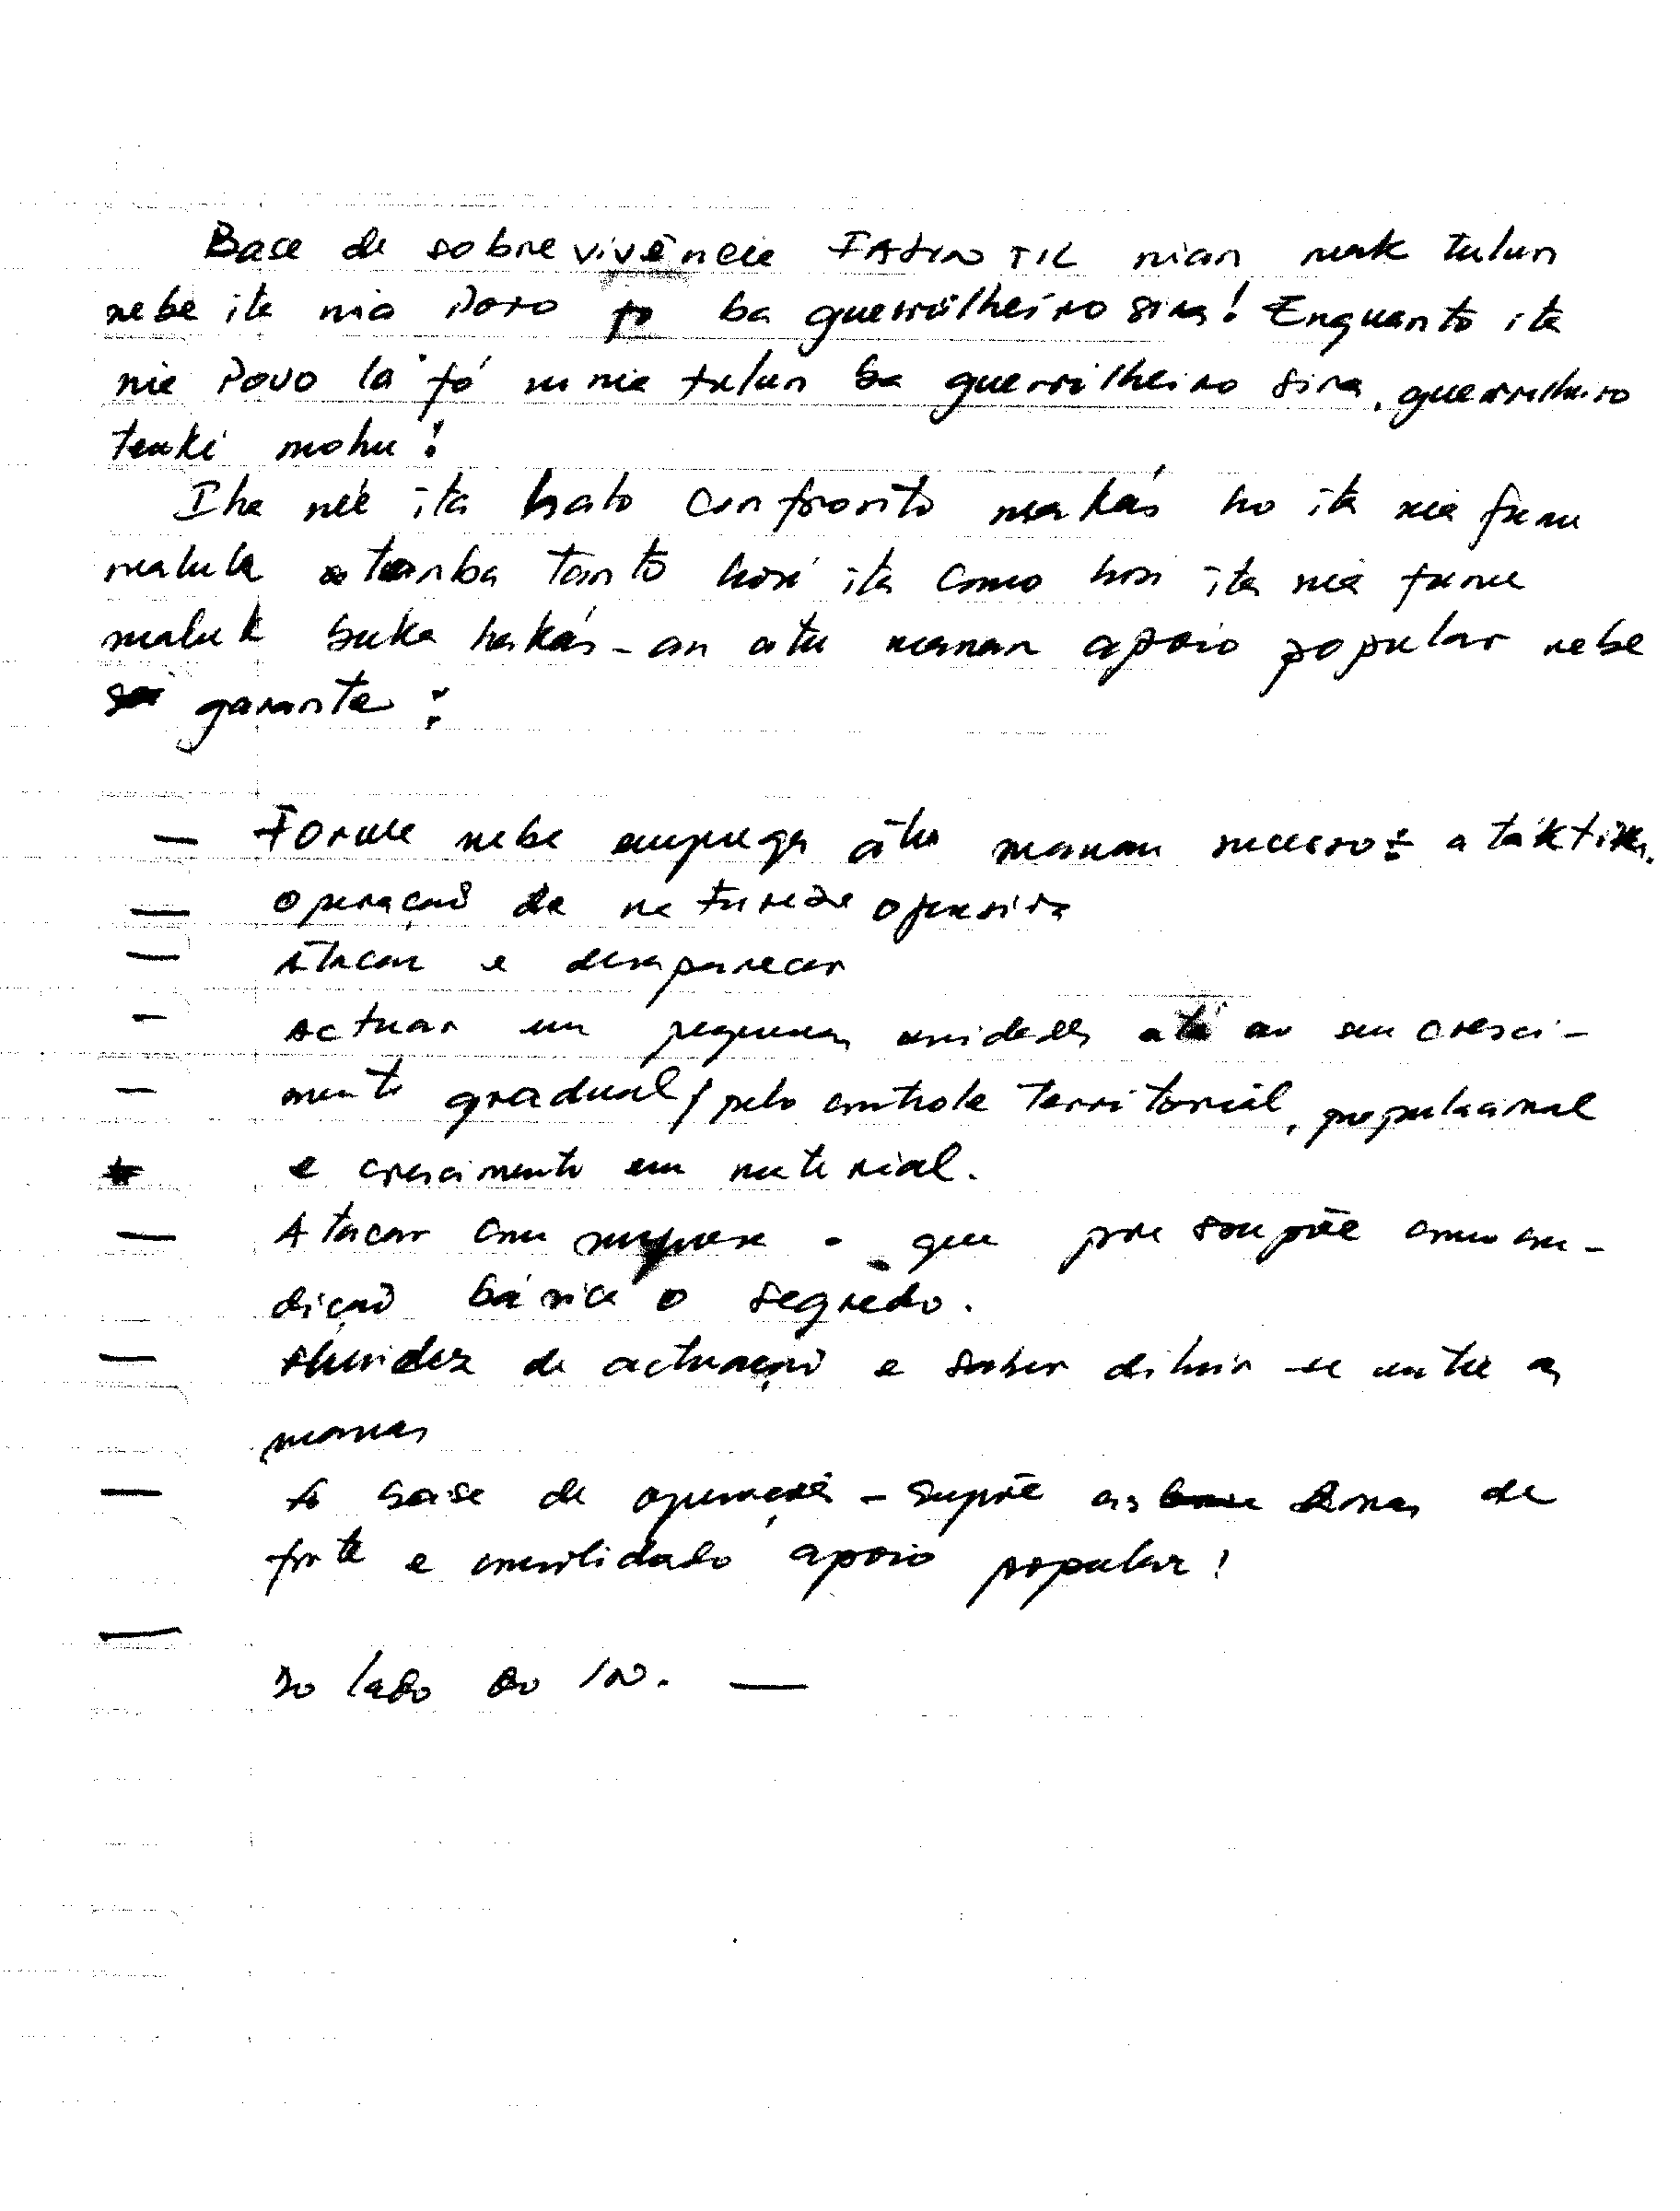 Base de sobrevivência FALINTIL nian mak tulun
nebe ita nia Povo fo ba guerrilheiro sira! Enquanto ita
nia Povo la fó nia tulun ba guerrilheiro sira, guerrilheiro
tenki mohu!
Iha né'e ita hato confronto makás ho ita nia funu
maluk tanba tanto hosi ita como hosi ita nia funu
maluk buka hakás-an atu manan apoio popular nebe
garante:
— Forma nebe emprega atu manan sucesso: a táktika.
— Operação de natureza ofensiva
— Atacar e desaparecer
- Actuar em pequenas unidades até ao seu cresci-
- mento gradual / pelo controle territorial, populacional
e crescimento em material.
— Atacar com surpresa - que pressupõe como con-
dição básica o segredo.
— fluidez de actuação e saber diluir-se entre as
massas
— base de operações - supõe as zonas de
forte e consolidado apoio popular!
—
Do lado do IN. —